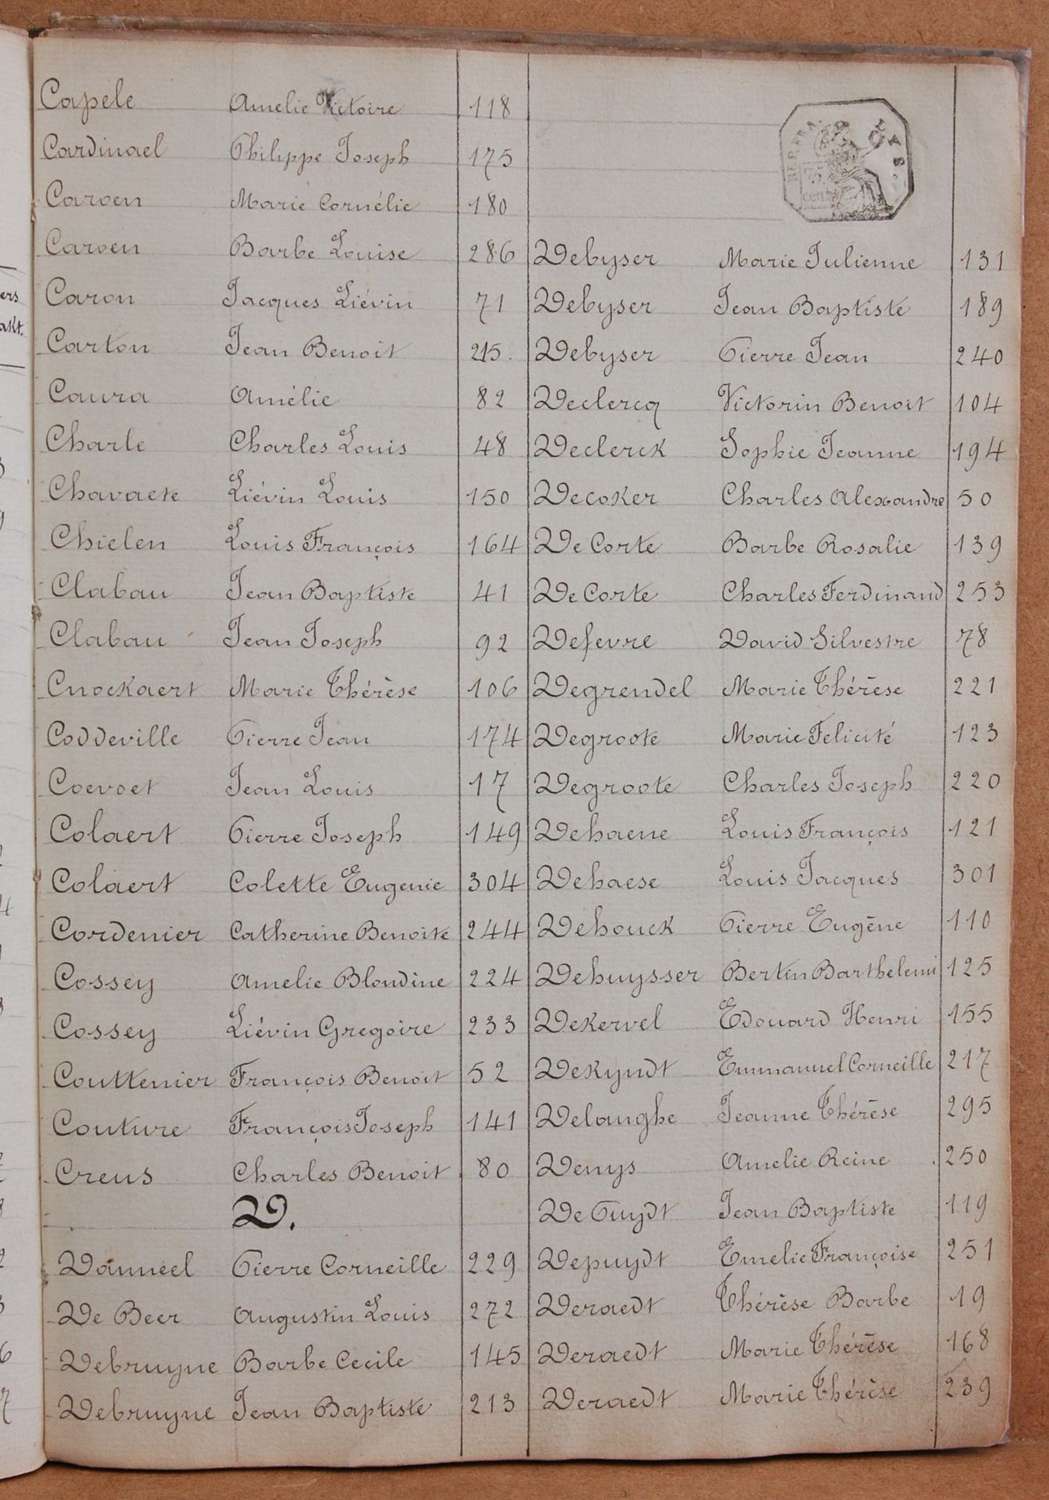 Capele Amelie Victoire 118
Cardinael Philippe Joseph 175
Caroen Marie Cornélie 180
Caroen Barbe Louise 286
Caron Jacques Liévin 71
Carton Jean Benoit 215.
Caura Amélie 82
Charle Charles Louis 48
Chavaete Liévin Louis 150
Chielen Louis François 164
Clabau Jean Baptiste 41
Clabau Jean Joseph 92
Cnockaert Marie Thérèse 106
Coddeville Pierre Jean 174
Coevoet Jean Louis 17
Colaert Pierre Joseph 149
Colaert Colette Eugenie 304
Cordenier Catherine Benoite 244
Cossey Amelie Blondine 224
Cossey Liévin Gregoire 233
Couttenier François Benoit 52
Couture François Joseph 141
Creus Charles Benoit 80
D.
Danneel Pierre Corneille 229
De Beer Augustin Louis 272
Debruyne Barbe Cecile 145
Debruyne Jean Baptiste 213
Debyser Marie Julienne 131
Debyser Jean Baptiste 189
Debyser Pierre Jean 240
Declercq Victorin Benoit 104
Declerck Sophie Jeanne 194
Decoker Charles Alexandre 50
De Corte Barbe Rosalie 139
De Corte Charles Ferdinand 253
Defevre David Silvestre 78
Degrendel Marie Thérèse 221
Degroote Marie Felicité 123
Degroote Charles Joseph 220
Dehaene Louis François 121
Dehaese Louis Jacques 301
Dehouck Pierre Eugène 110
Dehuysser Bertin Barthelemi 125
Dekervel Edouard Henri 155
Dekyndt Emmanuel Corneille 217
Delanghe Jeanne Thérèse 295
Denys Amelie Reine 250
De Puydt Jean Baptiste 119
Depuydt Emelie Françoise 251
Deraedt Thérèse Barbe 19
Deraedt Marie Thérèse 168
Deraedt Marie Thérèse 239